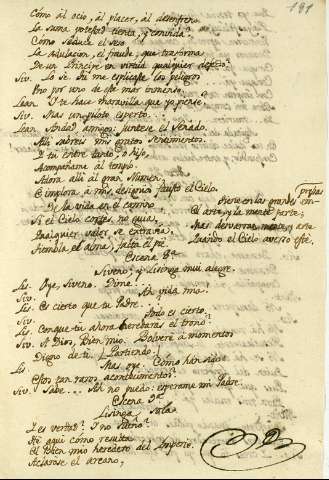 191
Cómo al ocio, al placer, al desenfreno
La suma potestad tienta, y convida?
Cómo seduce el seso
La adulacion, el fraude, que trasforma
De un Principe en virtud qualquier defecto?
Siv. Lo sé. Ah me explicaste los peligros
Pero por uno de este mar tremendo.
Lean. I te hace maravilla que yo piense?
Siv. Mas un piloto esperto...
Lean. Andad amigos: juntese el Senado.
Allí sabreis mis ciertos sentimientos.
I tú entre tanto, o hijo,
Acompañame al templo.
Adora allí al gran Numen,
E implora a mis designios fausto el Cielo.
I la vida en el camino,
Si el Cielo cortes no guia,
Qualquier valor se extravia,
Tiembla el alma, falta el pie.
Tiene en las grandes empresas
El arte, y la mente parte;
Mas de nuestra mente, y arte
Quando el Cielo averso esté.
Escena 8ª
Siveno; y Lisinga muy alegre.
Lis. Oye, Siveno. Dime.
Siv. Ah vida mia.
Lis. Es cierto que tu Padre...
Siv. Todo es cierto.
Lis. Conque tú ahora heredaras el trono?
Siv. A Dios, Bien mio. Bolveré a momentos
Digno de ti. Partiendo.
Lis. Mas oye. Cómo han sido
Estos tan raros acontecimientos?
Siv. Sabe... Ah no puedo: espereme mi Padre.
Escena 9ª
Lisinga, sola
Es verdad? I no sueño?
Hé aqui cómo resulta
El Bien mio heredero del Imperio.
Aclarase el arcano,